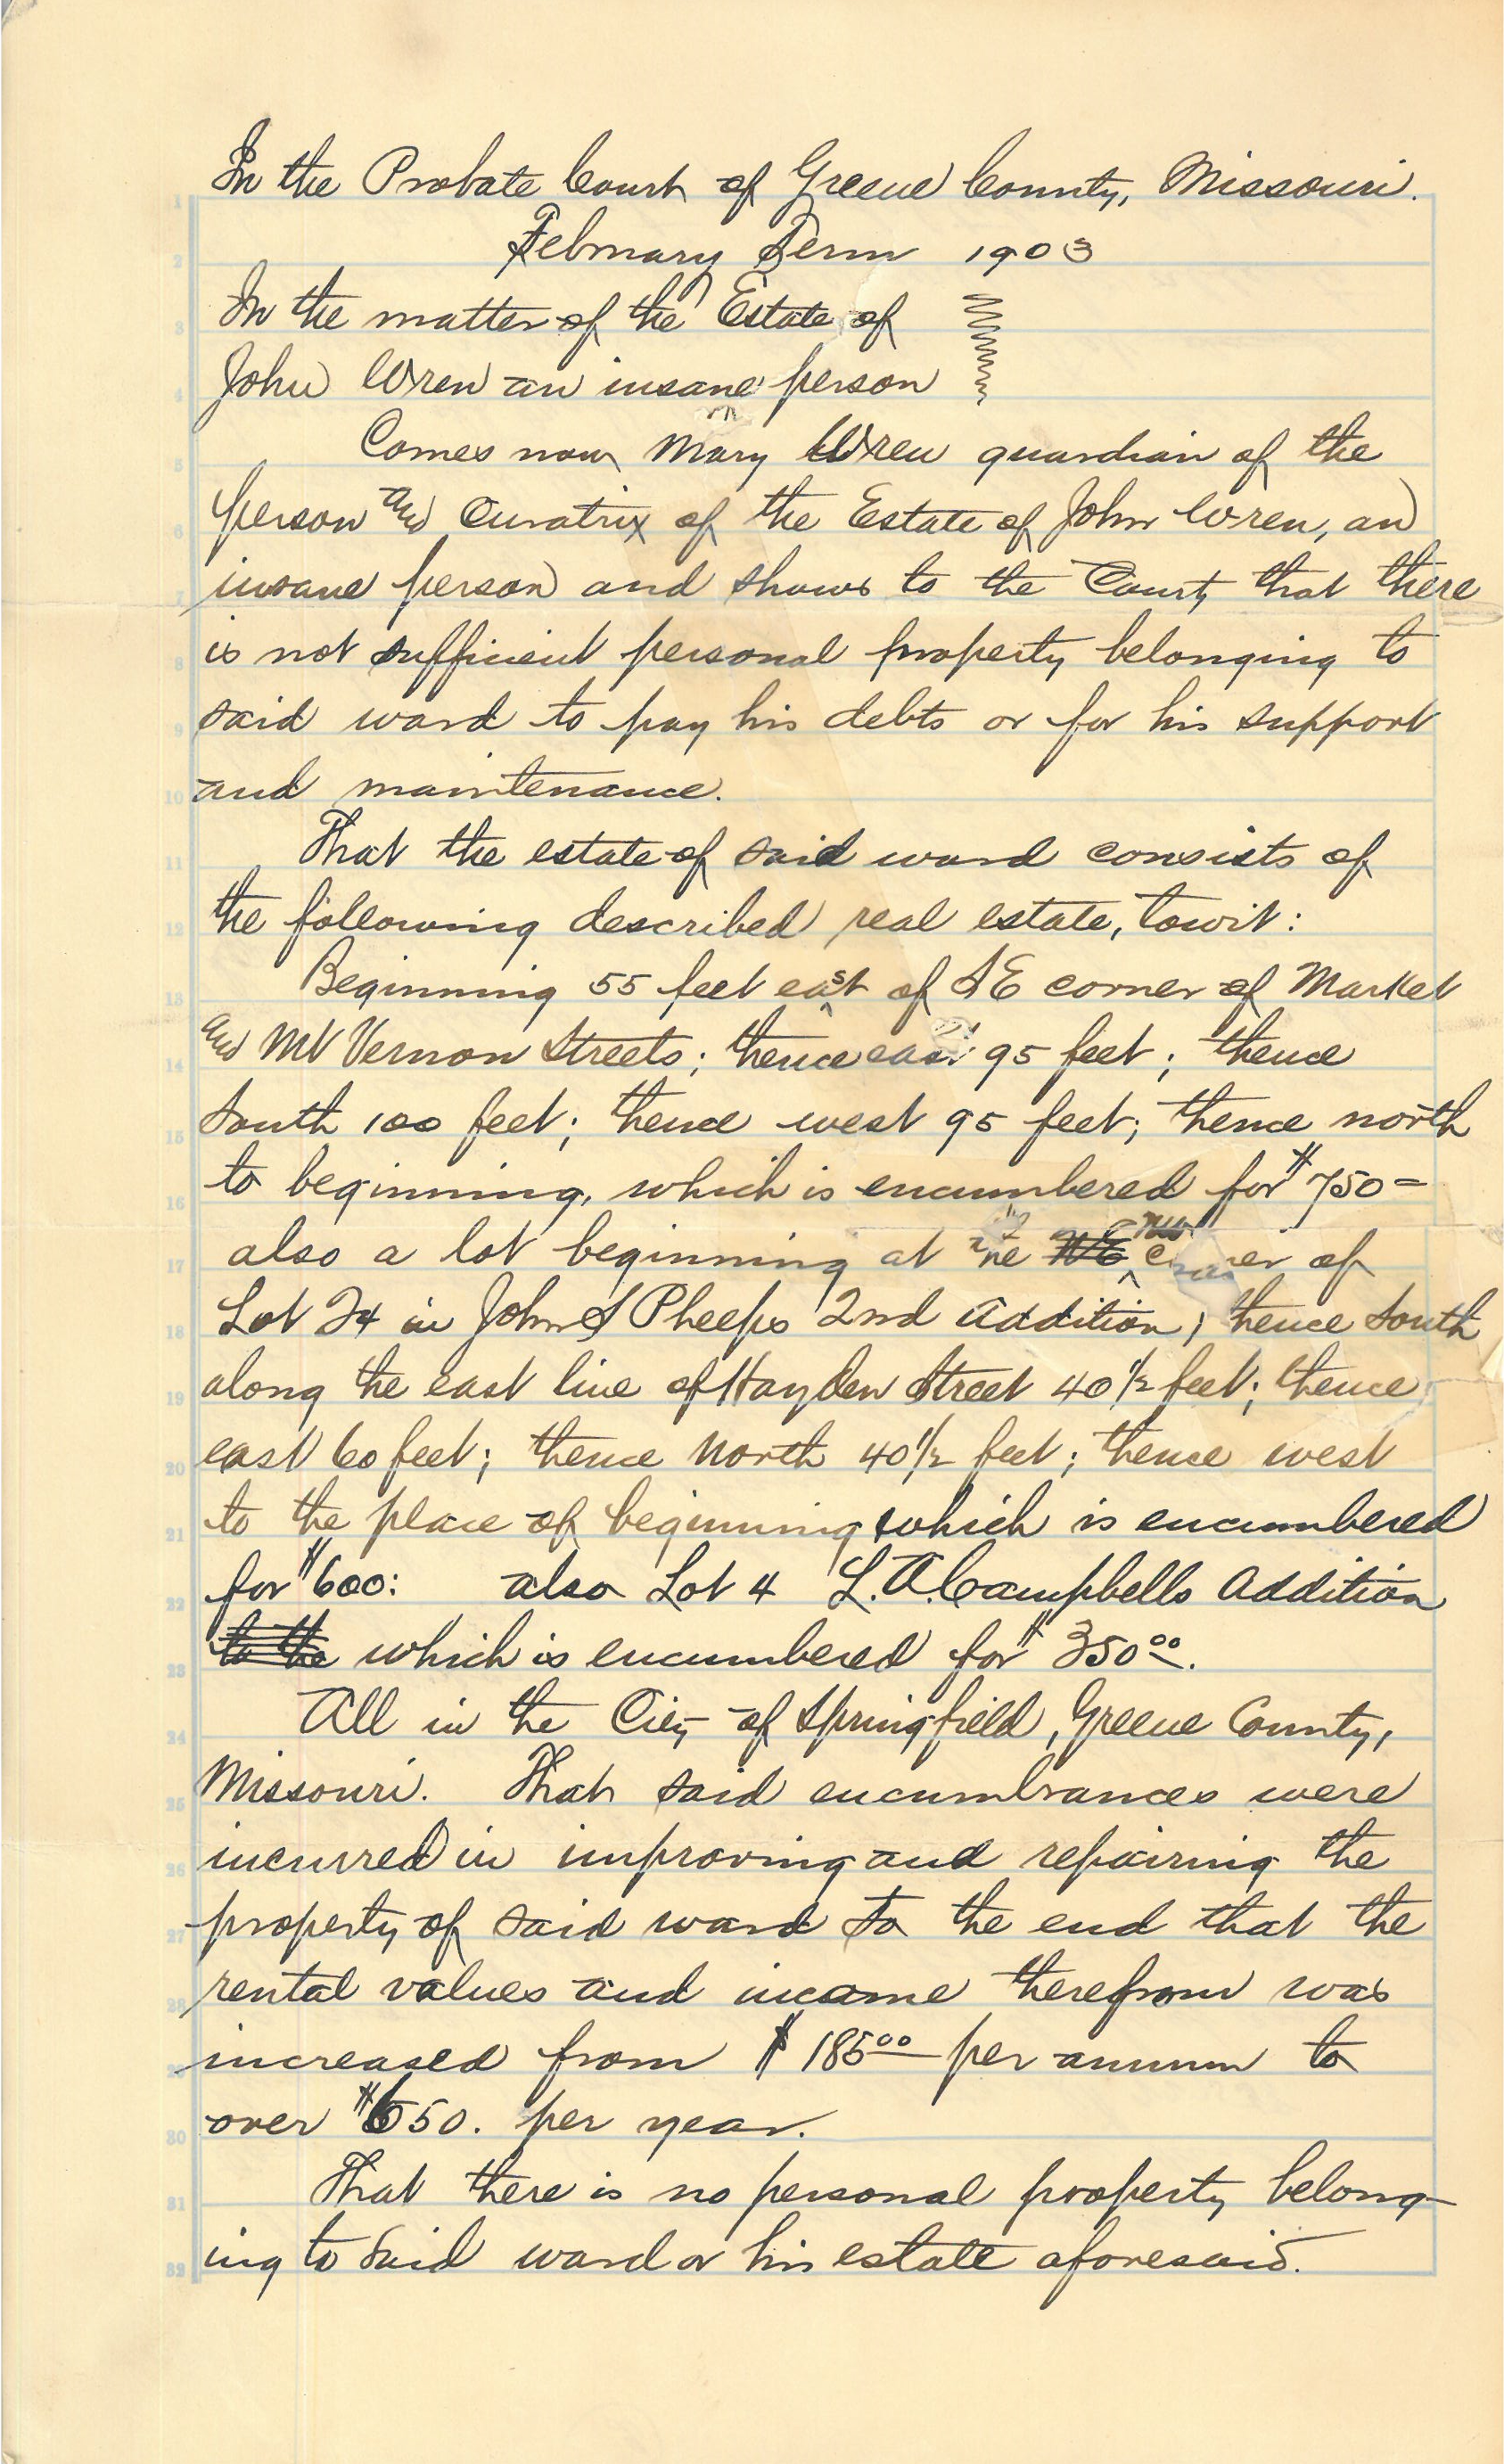 In the Probate Court of Greene County, Missouri.
February Term 1903
In the matter of the Estate of
John Wren an insane person
Comes now Mary Wren guardian of the
person and Curatrix of the Estate of John Wren, an
insane person and shows to the Court that there
is not sufficient personal property belonging to
said ward to pay his debts or for his support
and maintenance.
That the estate of said ward consists of
the following described real estate, towit:
Beginning 55 feet east of SE corner of Market
and Mt Vernon Streets; thence east 95 feet; thence
South 100 feet; thence west 95 feet; thence north
to beginning, which is encumbered for $750=
also a lot beginning at the corner of
Lot 24 in John S Phelps 2nd Addition; thence South
along the east line of Hayden Street 40 1/2 feet; thence
east 60 feet; thence North 40 1/2 feet; thence west
to the place of beginning which is encumbered
for $600: also Lot 4 L.A. Campbells Addition
to the which is encumbered for $350.00.
All in the City of Springfield, Greene County,
Missouri. That said encumbrances were
incurred in improving and repairing the
property of said ward to the end that the
rental values and income therefrom was
increased from $185.00 per annum to
over $650. per year.
That there is no personal property belong-
ing to said ward or his estate aforesaid.
1
2
3
4
5
6
7
8
9
10
11
12
13
14
15
16
17
18
19
20
21
22
23
24
25
26
27
28
29
30
31
32